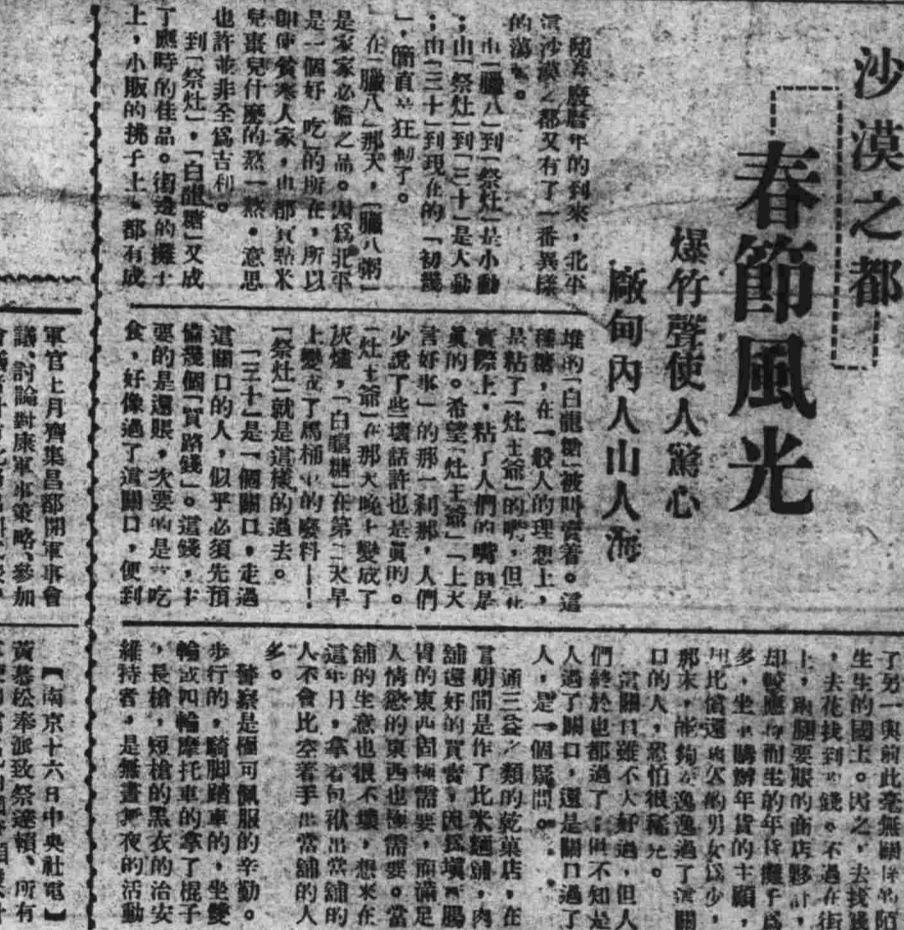 沙漠之都
春節風光
爆竹聲使人驚心
廠甸內人山人海
隨着廢曆年的到來，北平
這沙漠之都又有了一番異樣
的
由「臘八」到「祭灶」是小動
；由「祭灶」到「三十」是大動
；由「三十」到現在的「初幾
」，簡直是狂動了。
在「臘八」那天，「臘八粥」
是家家必備之品。因爲北平
是一個好「吃」的所在，所以
即使貧寒人家，也都買點米
兒棗兒什麼的熬一熬。意思
也許並非全爲吉利。
到「祭灶」，「白龍糖」又成
了應時的佳品。街邊的攤子
上，小販的挑子上。都有成
堆的「白龍糖」被叫賣着。這
種糖，在一般人的理想上，
是粘了「灶王爺」的嘴，但在
實際上，粘了人們的嘴的是
眞的。希望「灶王爺」「上天
言好事」的那一剎那，人們
少說了些壞話許也是眞的。
「灶王爺」在那天晚上變成了
灰爐，「白龍糖」在第二天早
上變成了馬桶中的廢料——
「祭灶」就是這樣的過去。
「三十」是一個關口，走過
這關口的人，似乎必須先預
備幾個「買路錢」。這錢，主
要的是還賬，次要的是 吃
食，好像過了這關口，便到
了另一與前此毫無關係的陌
生生的國土。因之，去找錢
，去花找到的錢。不過在街
上，跑腿要賬的商店夥計，
却較應 而生的年貨攤子爲
多，坐車購辦年貨的主顧，
比償還 欠的男女爲少，
那末，能夠安逸逸過了這關
口的人，恐怕很稀 。
這關口雖不大好過，但人
們終於也都過了；但不知是
人過了關口，還是關口過了
人，是一個疑問。
通三益之類的乾菓店，在
這期間是作了比米麵舖，肉
舖還好的買賣，因爲塡 腸
胃的東西固極需要，而滿足
人情慾的東西也極需要。當
舖的生意也很不壞，想來在
這年月，拿着包袱出當舖的
人不會比空着手出當舖的人
多。
警察是極可佩服的辛勤。
步行的，騎脚踏車的，坐雙
輪或四輪摩托車的拿了棍子
，長槍，短槍的黑衣的治安
維持者，是無晝無夜的活動
軍官上月齊集昌都開軍事會
議，討論對康軍事策略，參加
【南京十六日中央社電】
黃慕松奉派致祭達賴，所有